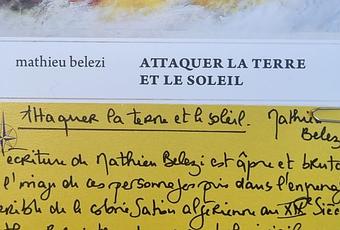 mathieu belezi
ATTAQUER LA TERRE
ET LE SOLEIL
Attaquer la terre et le soleil. Mathieu
Belez
'écriture de Mathieu Belezi est âpre et bruta
l'image de ces personnages pris dans l'engrenag
errible de la colonisation algérienne au XIXe Sièc